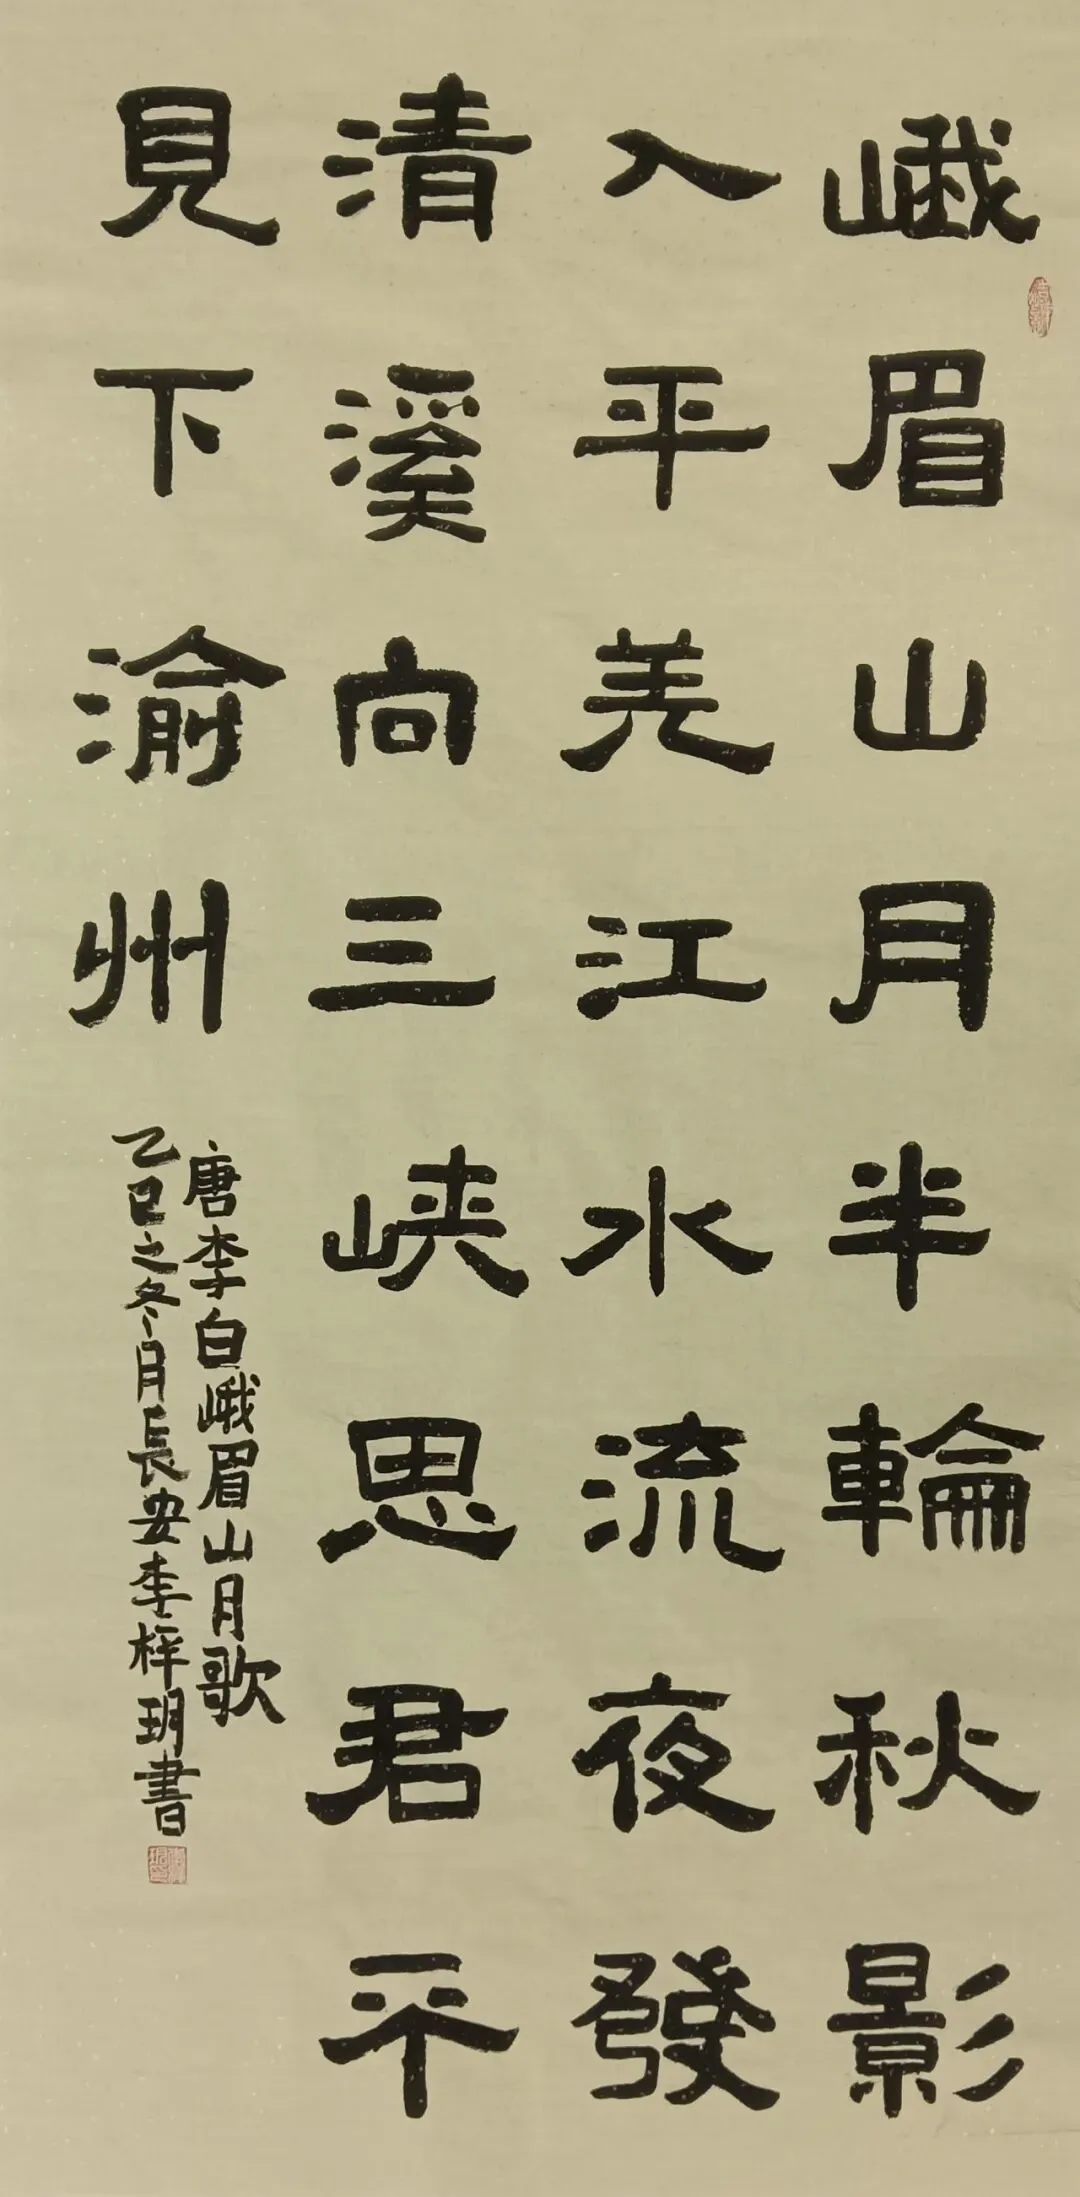 峨眉山月半輪秋影
入平羌江水流夜發
清溪向三峡思君不
見下渝州
唐李白峨眉山月歌
乙巳之冬月長安李梓玥書